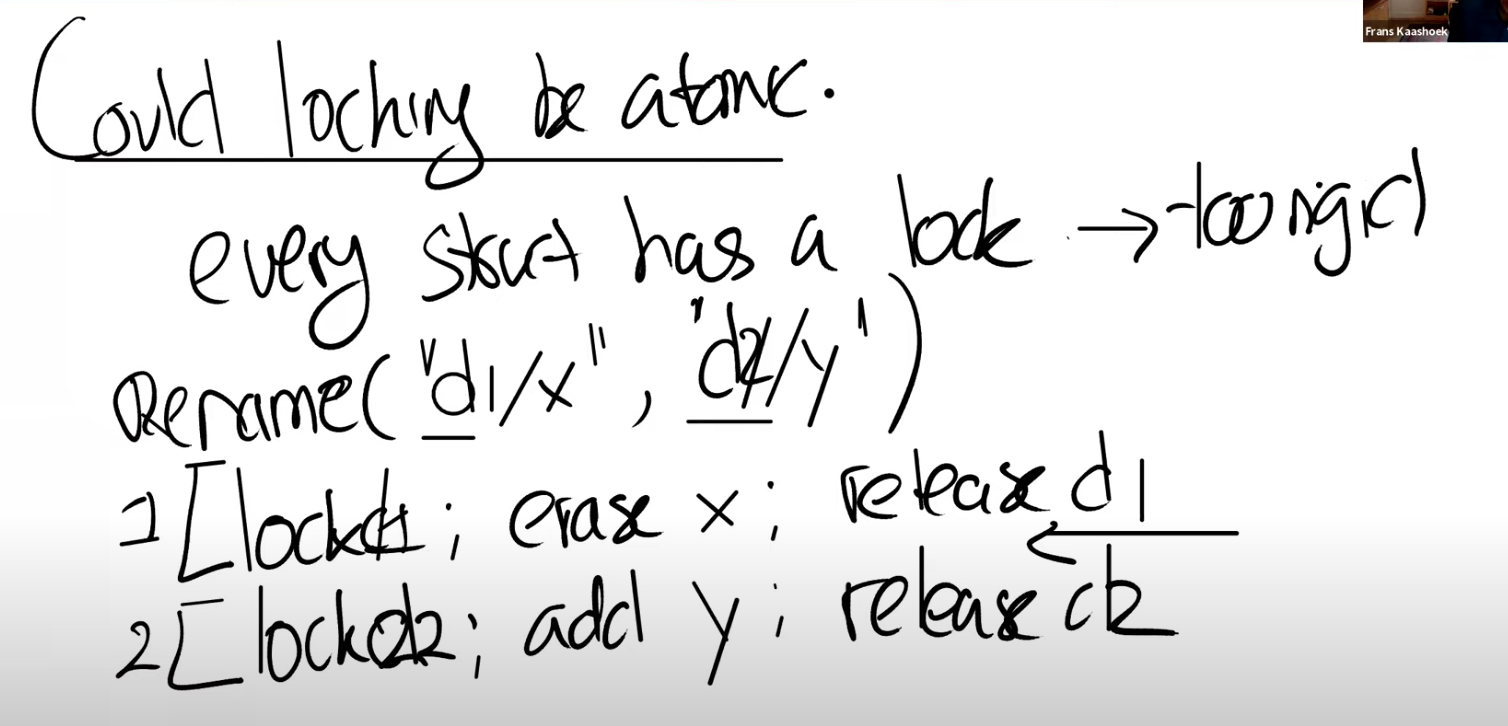 Frans Kaashoek
Could locking be atomic.
every struct has a lock → too rigid
Rename("d1/x", "d2/y")
1 [lock d1; erase x; release d1
2 [lock d2; add y; release d2